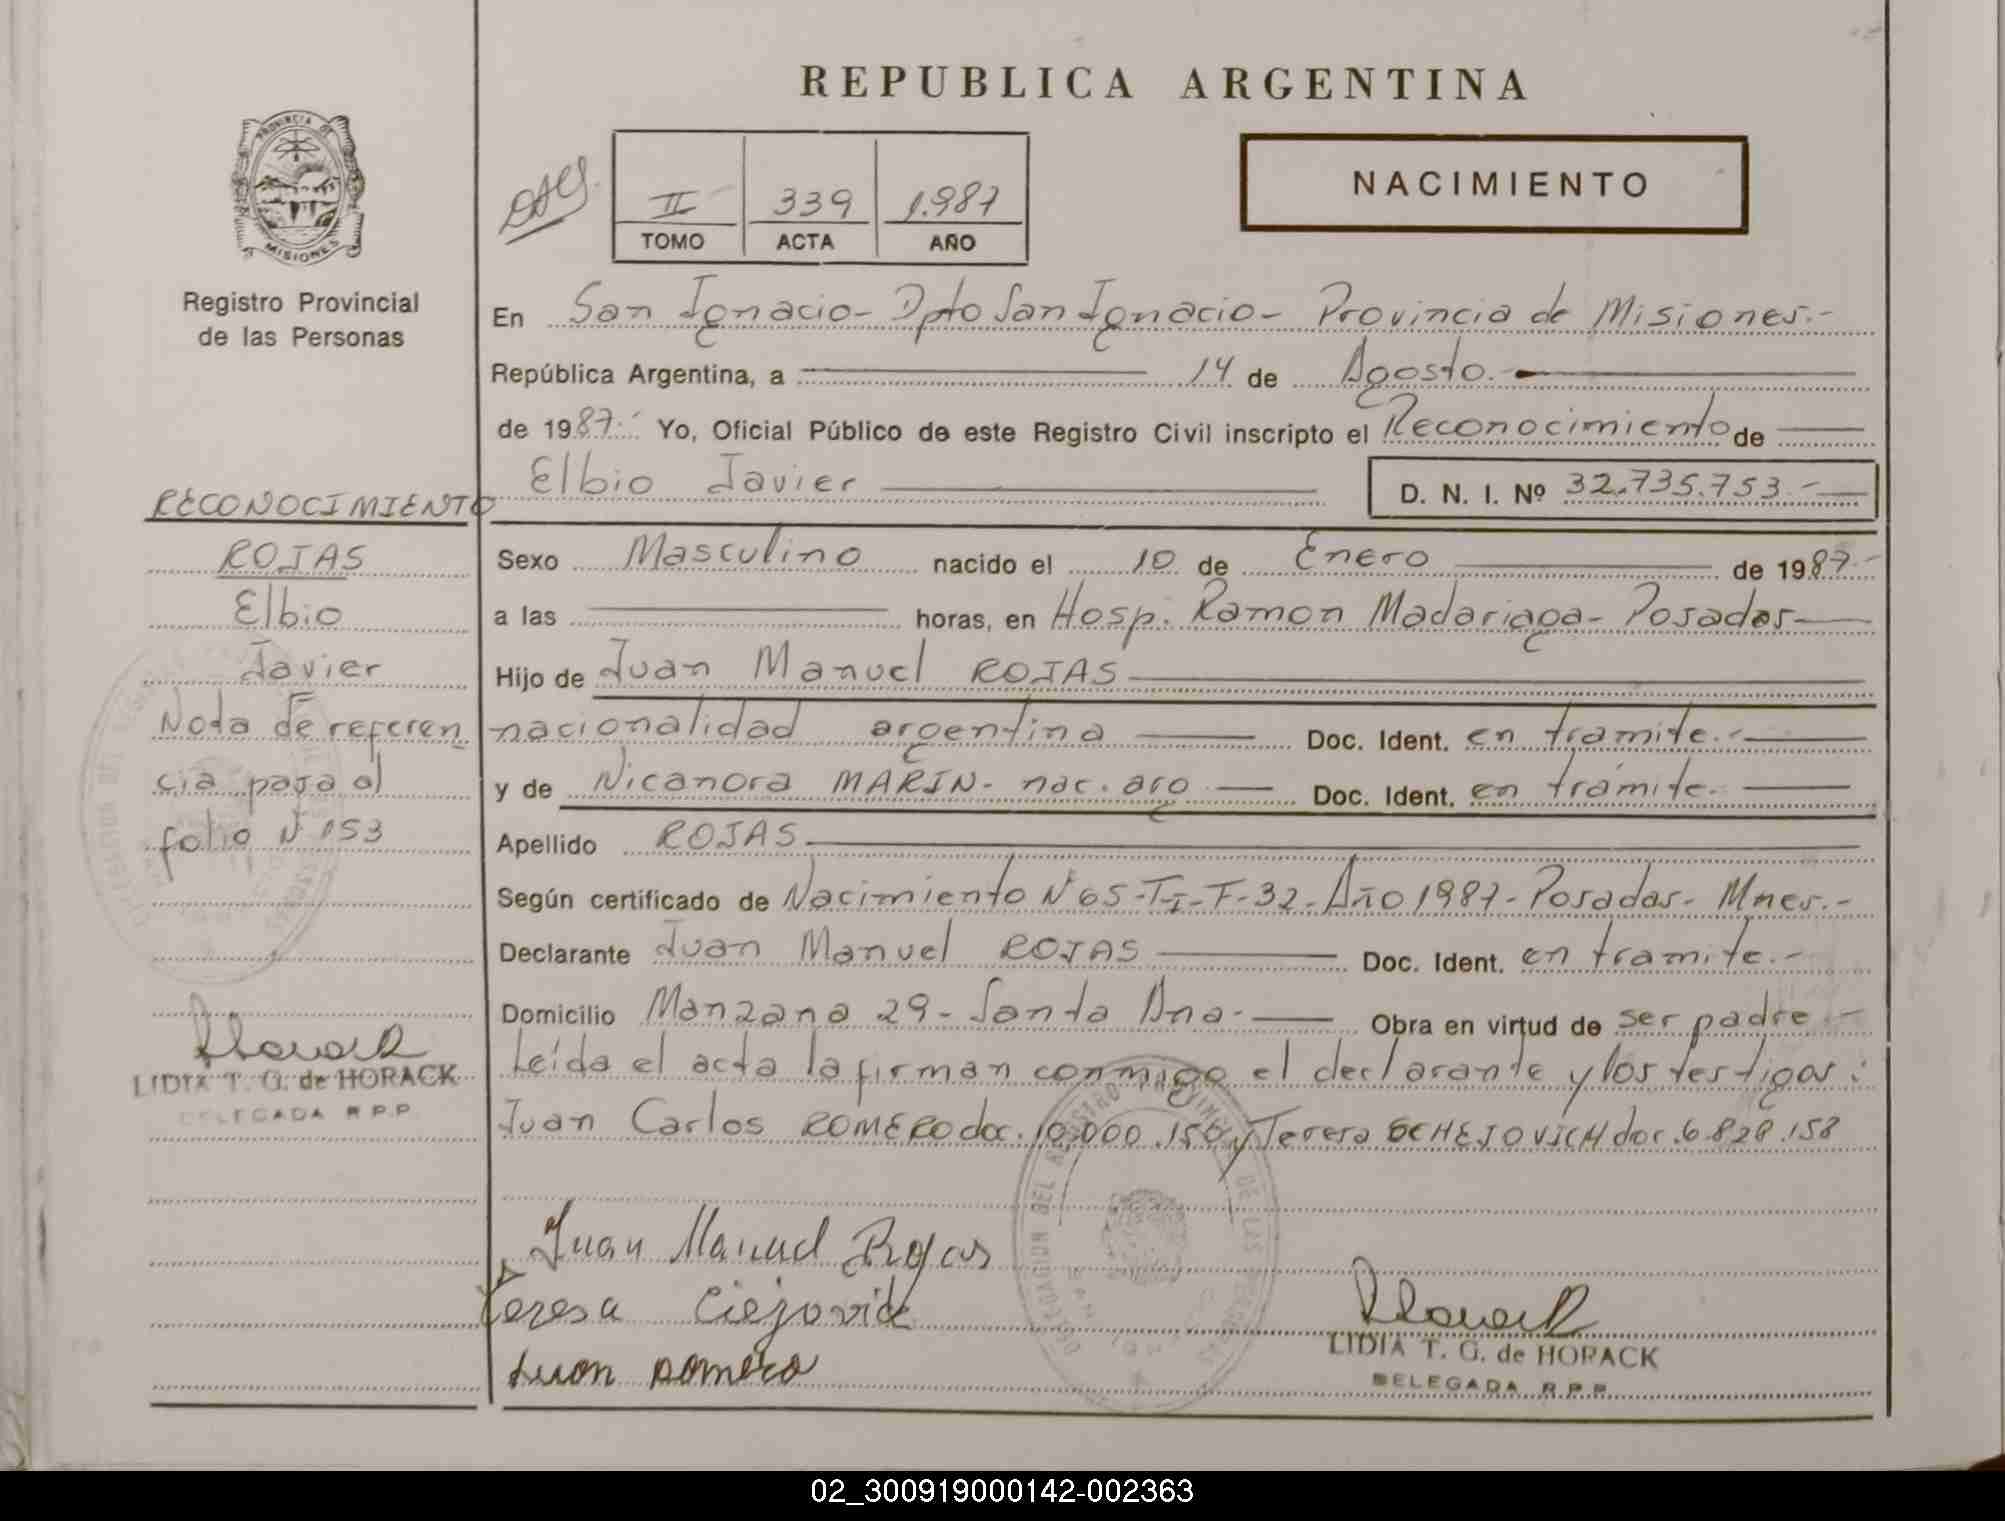 REPUBLICA ARGENTINA
PROVINCIA DE
MISIONES
Registro Provincial
de las Personas
NACIMIENTO
II 339 1.987
TOMO ACTA AÑO
En San Ignacio- Dpto San Ignacio- Provincia de Misiones.-
República Argentina, a 14 de Agosto.-
de 1987.- Yo, Oficial Público de este Registro Civil inscripto el Reconocimiento de
Elbio Javier D. N. I. Nº 32.735.753.-
RECONOCIMIENTO
ROJAS
Elbio
Javier
Nota de referen
cia pasa al
folio Nº 153
LIDIA T. G. de HORACK
DELEGADA R.P.P.
Sexo Masculino nacido el 10 de Enero de 1987.-
a las horas, en Hosp. Ramon Madariaga- Posadas-
Hijo de Juan Manuel ROJAS
nacionalidad argentina Doc. Ident. en tramite.-
y de Nicanora MARIN- nac. arg. Doc. Ident. en trámite.-
Apellido ROJAS
Según certificado de Nacimiento Nº 65-T-I-F-32-Año 1987-Posadas- Mnes.-
Declarante Juan Manuel ROJAS Doc. Ident. en tramite.-
Domicilio Manzana 29- Santa Ana.- Obra en virtud de ser padre.-
Leída el acta la firman conmigo el declarante y los testigos:
Juan Carlos ROMERO doc. 10.000.150 y Teresa doc. 6.828.158
Juan Manuel Rojas
Teresa
Juan Romero
LIDIA T. G. de HORACK
DELEGADA R.P.P.
02_300919000142-002363